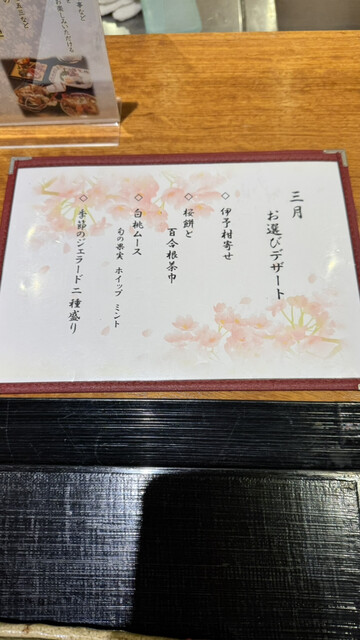 三月
お選びデザート
◇ 伊予柑寄せ
◇ 桜餅と
百合根茶巾
◇ 白桃ムース
旬の果実 ホイップ ミント
◇ 季節のジェラード二種盛り